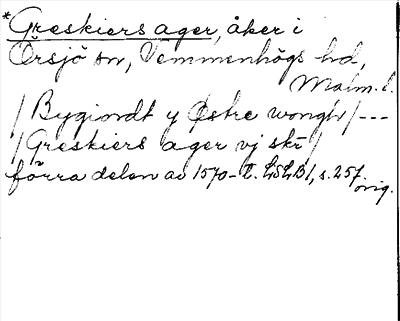 *Greskiers ager, åker i
Örsjö sn, Vemmenhögs hd,
Malm. l.
/Bygiordt y Østre wongh/---
/Greskiers ager vj skr/
förra delen av 1570-t. LSLB1, s. 257.
orig.